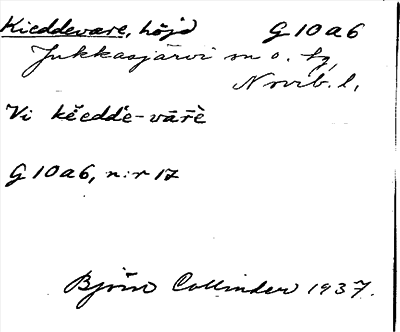 Kieddevare, höjd G 10 a 6
Jukkasjärvi sn o. tg,
Norrb. l.
Vi kĕɛddĕ-vārĕ̀
G 10 a 6, n:r 17
Björn Collinder 1937.